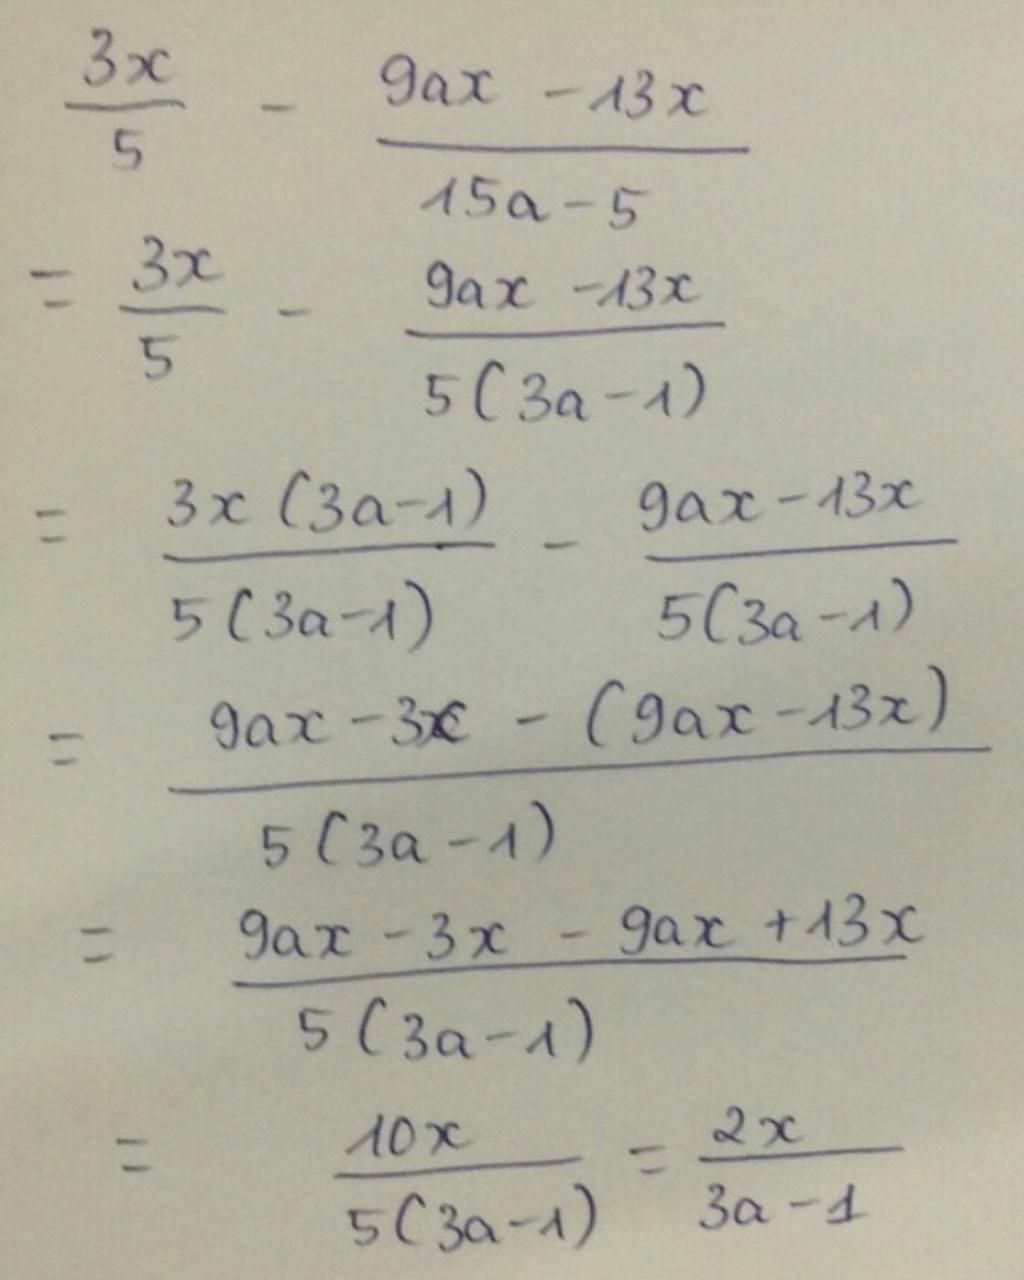 3x/5 - (9ax - 13x)/(15a - 5)
= 3x/5 - (9ax - 13x)/(5(3a - 1))
= (3x(3a - 1))/(5(3a - 1)) - (9ax - 13x)/(5(3a - 1))
= (9ax - 3x - (9ax - 13x))/(5(3a - 1))
= (9ax - 3x - 9ax + 13x)/(5(3a - 1))
= 10x/(5(3a - 1)) = 2x/(3a - 1)